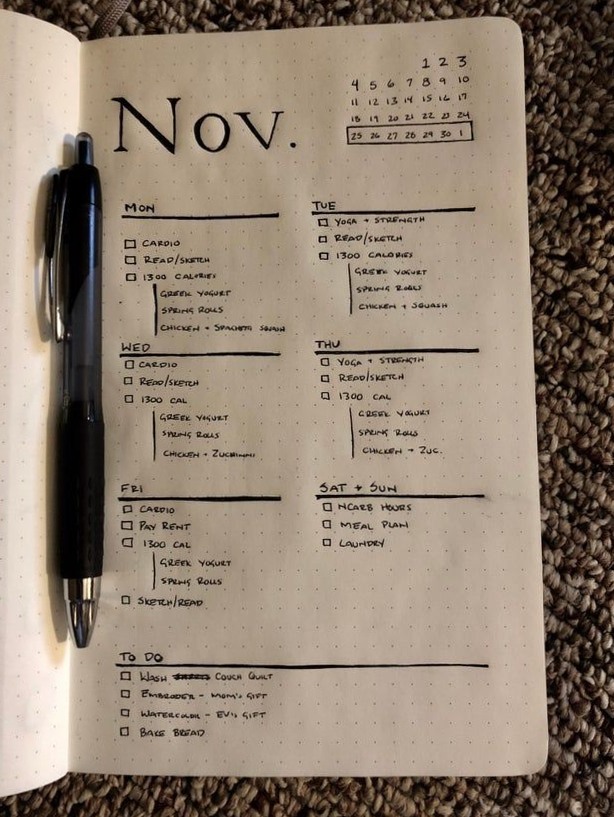 Nov.
1 2 3
4 5 6 7 8 9 10
11 12 13 14 15 16 17
18 19 20 21 22 23 24
25 26 27 28 29 30 1
MON
CARDIO
READ/SKETCH
1300 CALORIES
GREEK YOGURT
SPRING ROLLS
CHICKEN + SPAGHETTI SQUASH
TUE
YOGA + STRENGTH
READ/SKETCH
1300 CALORIES
GREEK YOGURT
SPRING ROLLS
CHICKEN + SQUASH
WED
CARDIO
READ/SKETCH
1300 CAL
GREEK YOGURT
SPRING ROLLS
CHICKEN + ZUCHINNI
THU
YOGA + STRENGTH
READ/SKETCH
1300 CAL
GREEK YOGURT
SPRING ROLLS
CHICKEN + ZUC.
FRI
CARDIO
PAY RENT
1300 CAL
GREEK YOGURT
SPRING ROLLS
SKETCH/READ
SAT + SUN
NCARB HOURS
MEAL PLAN
LAUNDRY
TO DO
WASH COUCH QUILT
EMBROIDER - MOM'S GIFT
WATERCOLOR - EVI'S GIFT
BAKE BREAD